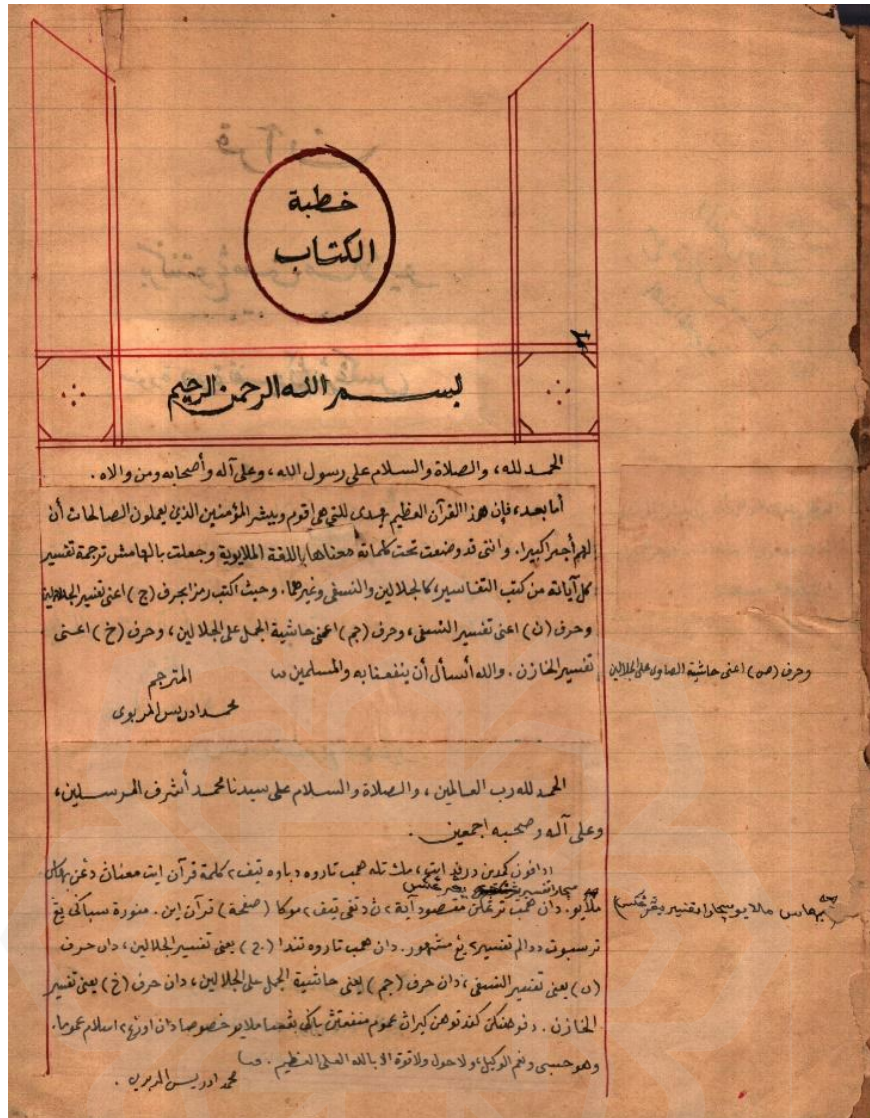 خطبة
الكتاب
بسم الله الرحمن الرحيم
الحمد لله، والصلاة والسلام على رسول الله، وعلى آله وأصحابه ومن والاه.
أما بعد، فإن هذا القرآن العظيم يهدى للتى هى اقوم ويبشر المؤمنين الذين يعملون الصالحات أن
لهم أجرا كبيرا. واننى قد وضعت تحت كلماته معناها باللغة الملايوية وجعلت بالهامش ترجمة تفسير
كل آياته من كتب التفاسير، كالجلالين والنسفى وغيرهما. وحيث اكتب رمز الجرف (ج) اعنى تفسير الجلالين
وحرف (ن) اعنى تفسير النسفى، وحرف (جم) اعنى حاشية الجمل على الجلالين، وحرف (خ) اعنى
تفسير الخازن. والله أسأل أن ينفعنا به والمسلمين
المترجم
محمد ادريس المربوى
وحرف (ص) اعنى حاشية الصاوى على الجلالين
الحمد لله رب العالمين، والصلاة والسلام على سيدنا محمد أشرف المرسلين،
وعلى آله وصحبه اجمعين.
ادافون كمدين درفد ايت، مك تله همب تاروه دباوه تيف٢ كلمة قرآن ايت معنان دغن بهاس
ملايو. دان همب ترغكن مقصود آية٢ ن دتفى تيف٢ موكا (صفحة) قرآن اين. منورة سباكى يغ
ترسبوت ددالم تفسير٢ يغ مشهور. دان همب تاروه تندا (ج) يعنى تفسير الجلالين، دان حرف
(ن) يعنى تفسير النسفى، دان حرف (جم) يعنى حاشية الجمل على الجلالين، دان حرف (خ) يعنى تفسير
الخازن. دفوهنكن كفد توهن كيران عموم منفعتن باكى بغسا ملايو خصوصا دان اورغ٢ اسلام عموما.
وهو حسبى ونعم الوكيل، ولا حول ولا قوة الا بالله العلى العظيم.
محمد ادريس المربوى.
بهاس مالايو سچارا تفسير